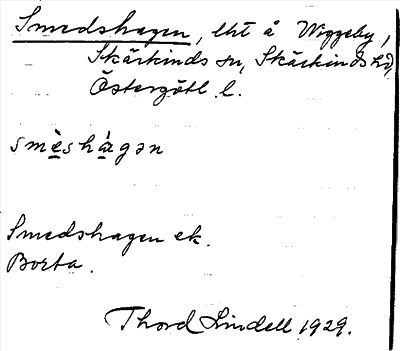 Smedshagen, lht å Wiggeby,
Skärkinds sn, Skärkinds hd,
Östergötl. l.
smè̱shà̱gən
Smedshagen ek.
Borta.
Thord Lindell 1929.